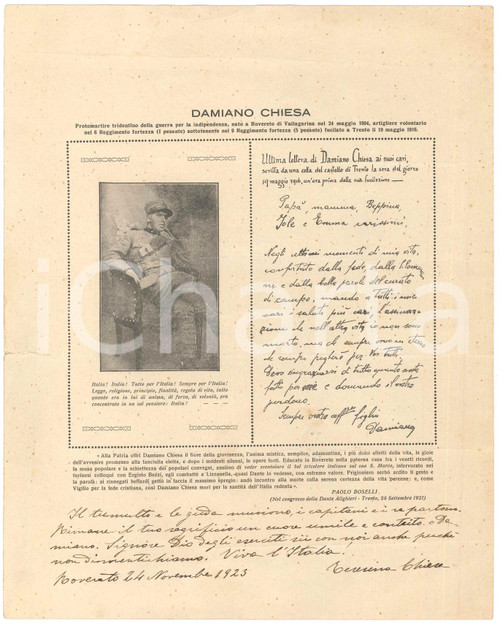 DAMIANO CHIESA
Protomartire tridentino della guerra per la indipendenza, nato a Rovereto di Vallagarina nel 24 maggio 1894, artigliere volontario
nel 6 Reggimento fortezza (I pesante) sottotenente nel 9 Reggimento fortezza (5 pesante) fucilato a Trento il 19 maggio 1916.
Italia! Italia! Tutto per l'Italia! Sempre per l'Italia!
Legge, religione, principio, finalità, regola di vita, tutto
quanto era in lui di anima, di forza, di volontà, era
concentrato in un sol pensiero: Italia!
Ultima lettera di Damiano Chiesa ai suoi cari,
scritta da una cella del castello di Trento la sera del giorno
19 maggio 1916, un'ora prima della sua fucilazione
Papà, mamma, Beppina,
Jole e Emma carissimi,
Negli ultimi momenti di mia vita,
confortato dalla fede, dalla
e dalla bella parola del curato
di campo, mando a tutti i miei
cari i saluti più cari, l'assicura-
zione che nell'altra vita io non sono
morto, ma che sempre vivo in eterno
che sempre pregherò per Voi tutti.
Devo ringraziarvi di tutto quanto avete
fatto per me e domando il vostro
perdono.
Sempre vostro aff.mo figlio
Damiano
«Alla Patria offrì Damiano Chiesa il fiore della giovinezza, l'anima mistica, semplice, adamantina, i più dolci affetti della vita, le gioie
dell'avvenire promesso alla fanciulla eletta, e dopo i molesti silenzi, le opere forti. Educato in Rovereto nella paterna casa tra i vessti ricordi,
la musa popolare e la schiettezza dei popolari convegni, cantore di voler sventolare il bel tricolore italiano sul con S. Marco, infervorato nei
torinesi colloqui con Ergisto Bezzi, agli combatté a Lizzanella, quasi Dante lo vedesse, con estremo valore. Prigioniero serbò ardito il gesto e
la parola; ai rinnegati beffardi gettò in faccia il massimo spregio; andò incontro alla morte colla serena certezza della vita perenne; e, come
Vigilio per la fede cristiana, così Damiano Chiesa morì per la santità dell'Italia redenta».
PAOLO BOSELLI
(Nel congresso della Dante Alighieri - Trento, 24 Settembre 1921)
Il tumulto e le grida muoiono, i capitani e i re partono.
Rimane il tuo sagrificio un cuore umile e contrito. Da
miano. Signore Dio degli eserciti sii con noi anche perchè
non dimentichiamo. Viva l'Italia.
Rovereto 24 Novembre 1923
Teresina Chiesa
iCharta